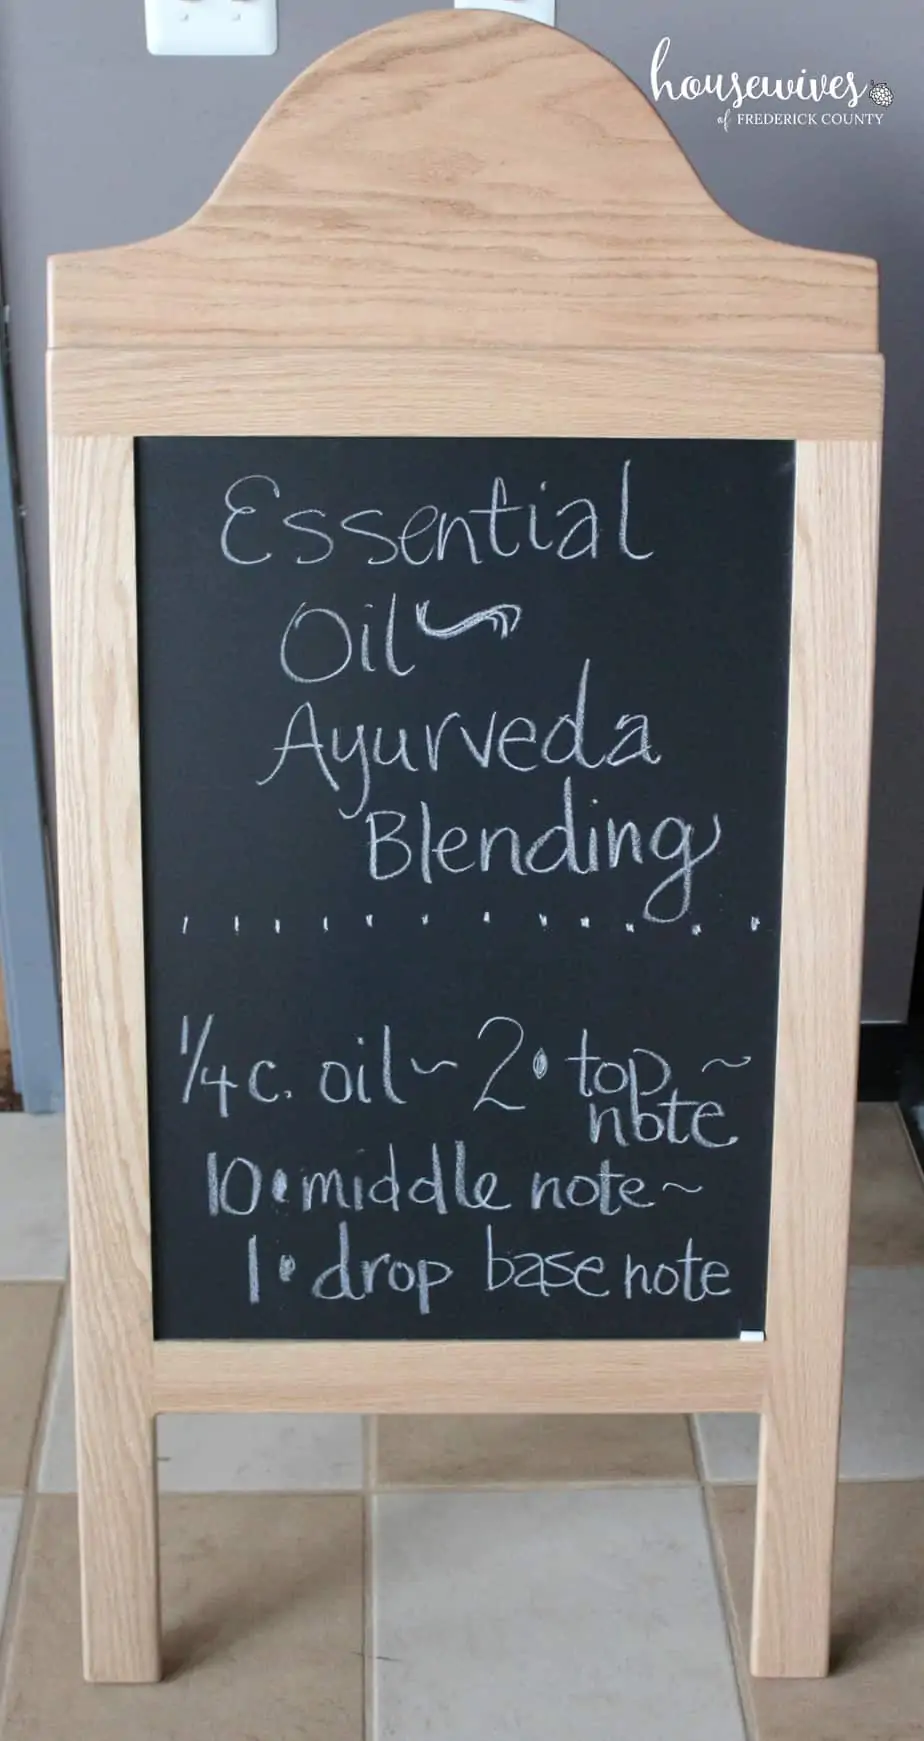 housewives
of FREDERICK COUNTY
Essential
Oil~
Ayurveda
Blending
1/4 c. oil~ 2• top ~
note
10•middle note~
1• drop base note